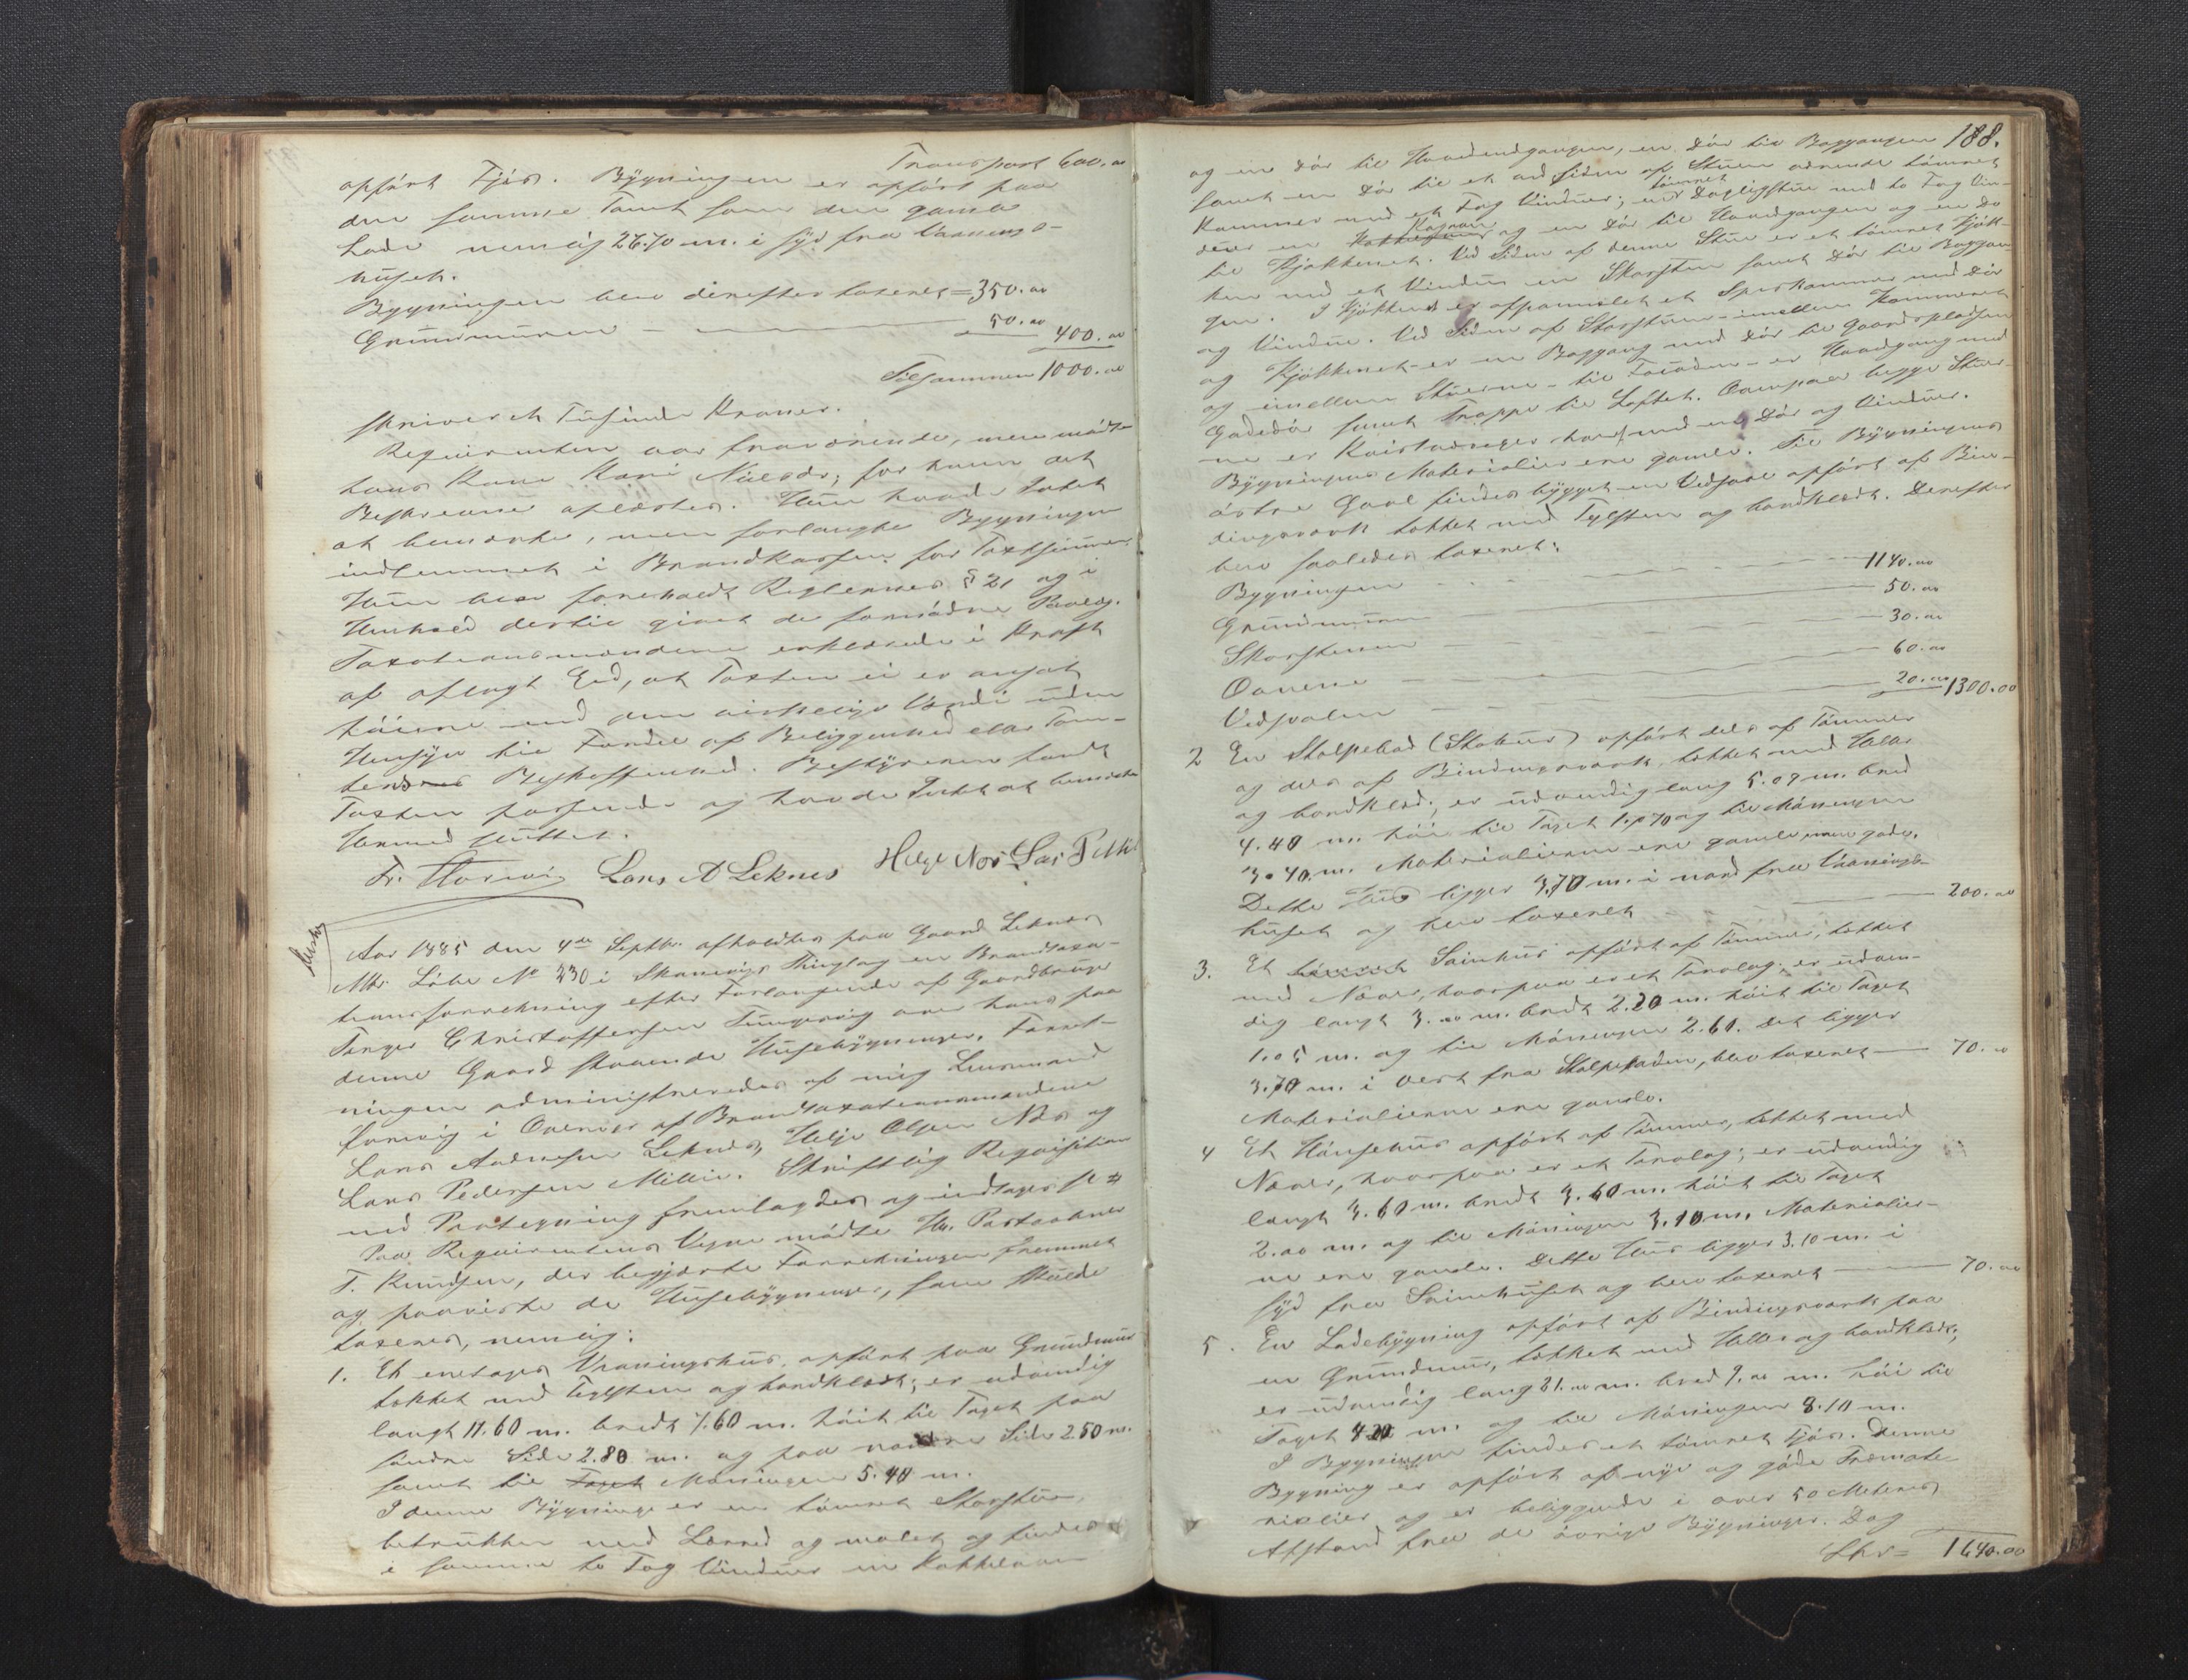 Transport 600.00
opført Fjøs. Bygningen er opført paa
den samme Tomt som den gamle
Lade nemlig 26.70 m. i syd fra Vaanings-
huset.
Bygningen blev derefter taxeret = 350.00
Grundmuren — 50.00 400.00
Tilsammen 1000.00
skriver et Tusinde Kroner.
Requirenten var fraværende, men mødte
hans Kone Kari Nilsdr; for hvem det
Beskrevne oplæstes. Hun havde Intet
at bemærke, men forlangte Bygningen
indlemmet i Brandkassen for Taxtsummen.
Hun blev foreholdt Reglernes § 21 og i
Henhold dertil givet de fornødne Paalæg.
Taxationsmændene erklærede i Kraft
af aflagt Eed, at Taxten ei er ansat
høiere end den virkelige Værdi uden
Hensyn til Fordel af Beliggenhed eller Tom-
tens Beskaffenhed. Bestyreren fandt
Taxten passende og havde Intet at bemærke
Hermed sluttet.
Fr. Lars A Leknes Helge Næs Lar P Mil
Aar 1885 den 4de Septbr. afholdtes paa Gaard Leknes
Mtr. Løbe No 230 i Skaanevigs Thinglag en Brandtaxa-
tionsforretning efter Forlangende af Gaardbruger
Christoffersen over hans paa
denne Gaard staaende Husebygninger. Forret-
ningen administreredes af mig Lensmand
i Overvær af Brandtaxationsmændene
Lars Andersen Leknes, Helje Olsen Næs og
Lars Pedersen Milje. Skriftlig Requisition
med Paategning fremlagdes og indtages
Paa Requirentens Vegne mødte Hr.
T. Knudsen, der begjærte Forretningen fremmet
og paaviste de Husebygninger, som skulde
taxeres, nemlig:
1. Et enetages Vaaningshus, opført paa Grundmur
tækket med Teglsten og bordklædt; er udvendig
langt 11.60 m. bredt 7.60 m. høit til Taget paa
søndre Side 2.80 m. og paa nordre Side 2.50 m.
samt til Mønningen 5.40 m.
I denne Bygning er en tømret Storstue,
betrukken med Lærred og malet og findes
i samme to Fag Vinduer en Kakkelovn
188.
og en Dør til Hovedindgangen, en Dør til Baggangen
samt en Dør til et ved Siden af Stuen værende tømret
Kammer med et Fag Vinduer; en tømret Dagligstue med to Fag Vin-
duer en og en Dør til Hovedgangen og en Do
til Kjøkkenet. Ved Siden af denne Stue er et tømret Kjøk-
ken med et Vindue en Skorsten samt Dør til Baggan-
gen. I Kjøkkenet er afpanelet et Spiskammer med Dør
og Vindue. Ved Siden af Storstuen - imellem Kammeret
og Kjøkkenet - er en Baggang med Dør til Gaardspladsen
og imellem Stuerne - til Facaden - er Hovedgang med
Gadedør samt Trappe til Loftet. Ovenpaa begge Stuer-
ne er Kvistværelser med en Dør og Vinduer.
Bygningens Materialier ere gamle. Til Bygningens
østre Gavl findes bygget en Vedsval opført af Bin-
dingsværk tækket med Teglsten og bordklædt. Derefter
blev saaledes taxeret:
Bygningen — 1140.00
Grundmuren — 50.00
Skorstenen — 30.00
Ovnene — 60.00
Vedsvalen — 20.00 1300.00
2 En Stolpebod (Stabur) opført dels af Tømmer
og dels af Bindingsværk, tækket med Heller
og bordklæd; er udvendig lang 5.09 m. bred
4.40 m. høi til Taget og til Mønningen
3.40 m. Materialierne ere gamle, men gode.
Dette Hus ligger 3.70 m. i nord fra Vaanings-
huset og blev taxeret — 200.00
3. Et Svinhus opført af Tømmer, tækket
med Næver, hvorpaa er et Torvlag; er udven-
dig langt 3.00 m. bredt 2.20 m. høit til Taget
1.05 m. og til Mønningen 2.60. Det ligger
3.70 m. i Vest fra Stolpeboden, blev taxeret — 70.00
Materialierne ere gamle.
4 Et Hønsehus opført af Tømmer, tækket med
Næver, hvorpaa er et Torvlag; er udvendig
langt 3.60 m. bredt 3.60 m. høit til Taget
2.00 m. og til Mønningen 3.10 m. Materialier-
ne ere gamle. Dette Hus ligger 3.10 m. i
syd fra Svinehuset og blev taxeret — 70.00
5. En Ladebygning opført af Bindingsværk paa
en Grundmur, tækket med Heller og bordklædt;
er udvendig lang 21.00 m. bred 9.00 m. høi til
Taget 4.20 m. og til Mønningen 8.10 m.
I Bygningen findes et tømret Fjøs. Denne
Bygning er opført af nye og gode Træmate-
rialier og er beliggende i over 50 Meters
Afstand fra de øvrige Bygninger. Dog
Lhr = 1640.00